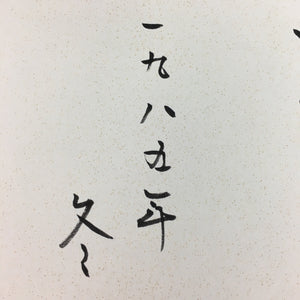 一九八五年
冬